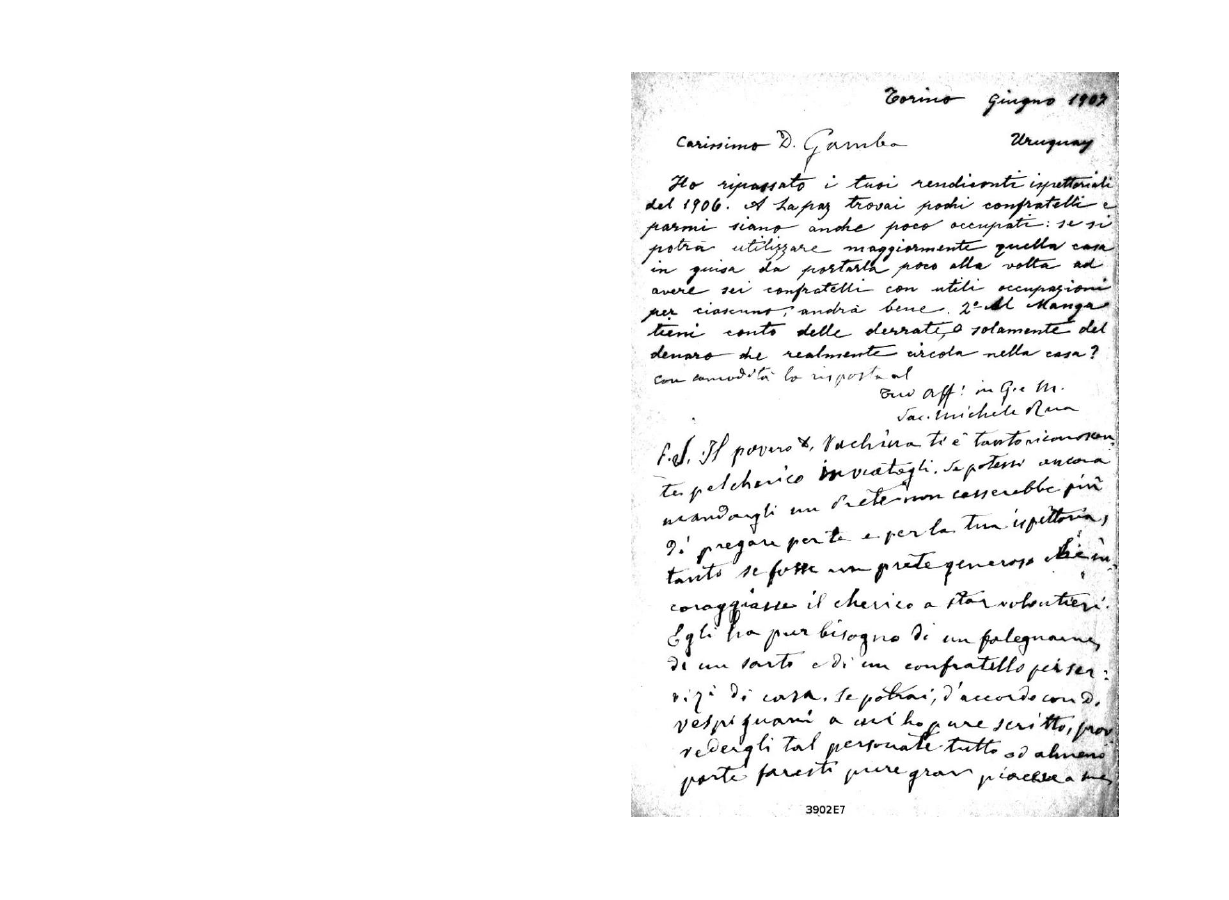 Torino Giugno 1907
Carissimo D. Gamba Uruguay
Ho ripassato i tuoi rendiconti ispettoriali
del 1906. A Lapaz trovai pochi confratelli e
parmi siano anche poco occupati: se si
potrà utilizzare maggiormente quella casa
in guisa da portarla poco alla volta ad
avere sei confratelli con utili occupazioni
per ciascuno, andrà bene. 2° Al Manga
tieni conto delle derrate, o solamente del
denaro che realmente circola nella casa?
con comodità la risposta al
Tuo aff. in G. e M.
Sac. Michele Rua
P.S. Il povero D. Vachina ti è tanto riconoscen
te pel cherico inviatogli. Se potessi ancora
mandargli un prete non cesserebbe più
di pregare per te e per la tua ispettoria,
tanto se fosse un prete generoso che in
coraggiasse il cherico a star volentieri.
Egli ha pur bisogno di un falegname,
di un sarto e di un confratello per ser:
vizi di casa. Se potrai, d'accordo con D.
Vespignani a cui ho pure scritto, prov
vedergli tal personale tutto od almeno
parte faresti pure gran piacere a me
3902E7